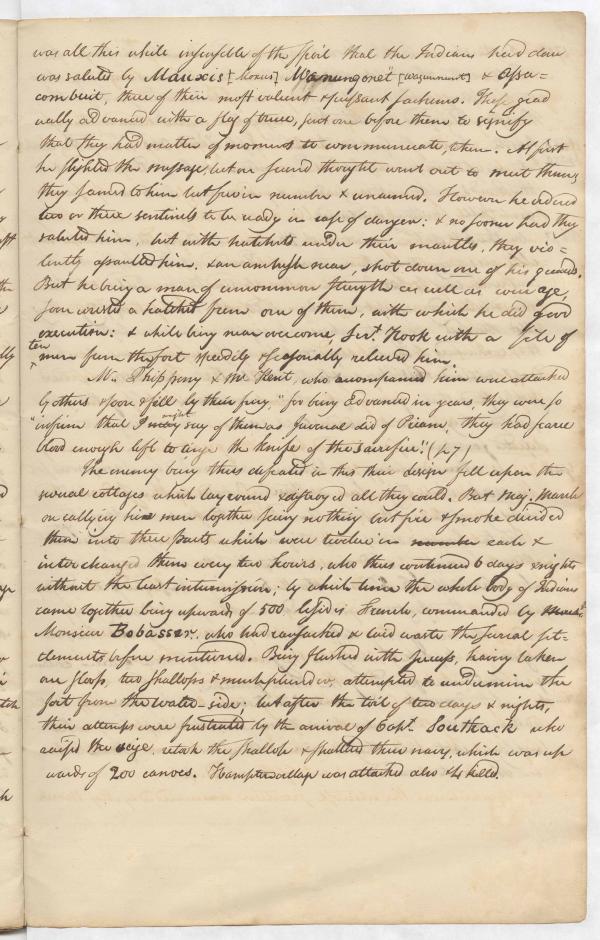 was all this while insensible of the spoil that the Indians had done
was saluted by Mauxis [Moxus] Wanungonet" [Wagunmunt] & Assa-
combuit, three of their most valient & puissant sachems. These grad
ually advanced with a flag of truce, sent one before them to signify
that they had matter of moment to communicate, them. At first
he slighted the message, but on second thought went out to meet them;
they seemed to him but few in number & unarmed. However he ordered
two or three sentinels to be ready in case of danger: & no sooner had they
saluted him, but with hatchets under their mantles, they vio-
lently assaulted him, & an ambush near, shot down one of his guard.
But he being a man of uncommon strength as well as courage,
soon wrested a hatchet from one of them, with which he did good
execution: & while being near overcome, Serj.t Hook with a file of
ten
men from the fort speedily & seasonably relieved him.
Mr. Phippeny & Mr Kent, who accompanied him were attacked
by others & soon fell by their fury, "for being advanced in years, they were so
"infirm that I might say of them as Juvenal did of Priam, they had scarce
blood enough left to tinge the knife of the sacrifice." (p. 7)
The enemy being thus defeated in this their design fell upon the
several cottages which lay round & destroyed all they could. But Maj. March
on callying his men together seeing nothing but fire & smoke divided
them into three parts which were twelve in number each &
interchanged them every two hours, who thus continued 6 days & nights
without the least intermission; by which time the whole body of Indians
came together being upwards of 500 besides French, commanded by
Monsieur Bobasser, who had ransacked & laid waste the several set-
tlements before mentioned. Being flushed with success, having taken
one sloop, two shallops & much plunder, attempted to undermine the
fort from the water-side; but after the toil of two days & nights,
their attempts were frustrated by the arrival of Capt. Southack who
raised the seige, retook the shallop & shatted their navy, which was up
wards of 200 canoes. Hampton village was attacked also & 4 killed.